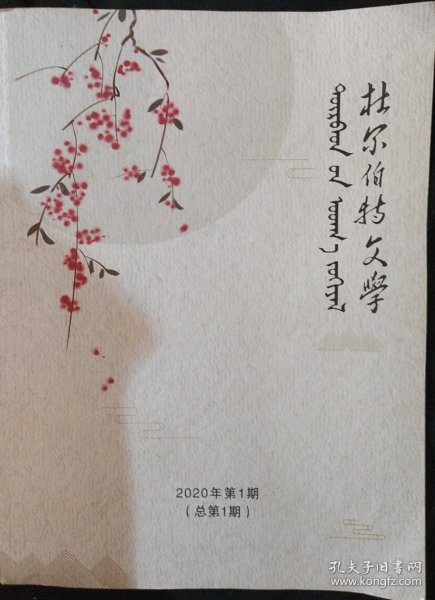 杜尔伯特文學
2020年第1期
（总第1期）
孔夫子旧书网
www.kongfz.com